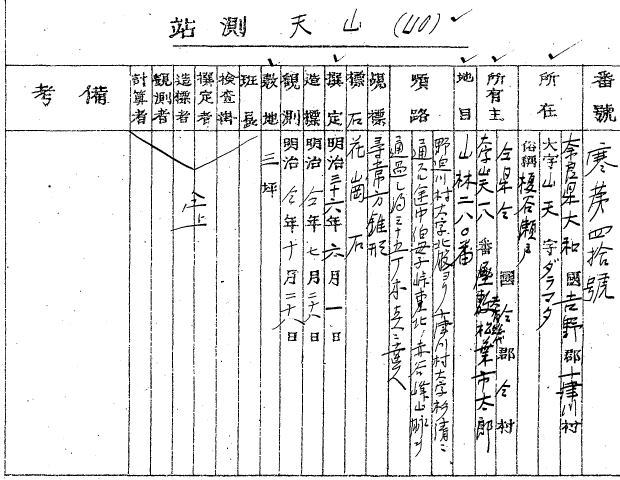 站測 天山 (40)
番號 寒第四拾號
所在 奈良県大和國吉野郡十津川村
大字山天字ダラマタ
俗稱榎谷瀬戸
所有主 仝県仝國仝郡仝村
大字山天一八番屋敷松葉市太郎
地目 山林二八〇番
順路 野迫川村大字北股ヨリ十津川村大字杉清ニ
通スル途中伯母子峠東北ノ赤谷峰山脈ヲ
通過シ約三十五丁
覘標 尋常方錐形
標石 花崗石
撰定 明治三十六年六月一日
造標 明治仝年七月二十八日
観測 明治仝年十月二十八日
敷地 三坪
班長
検査掛
撰定者
造標者
観測者
計算者
仝上
備考